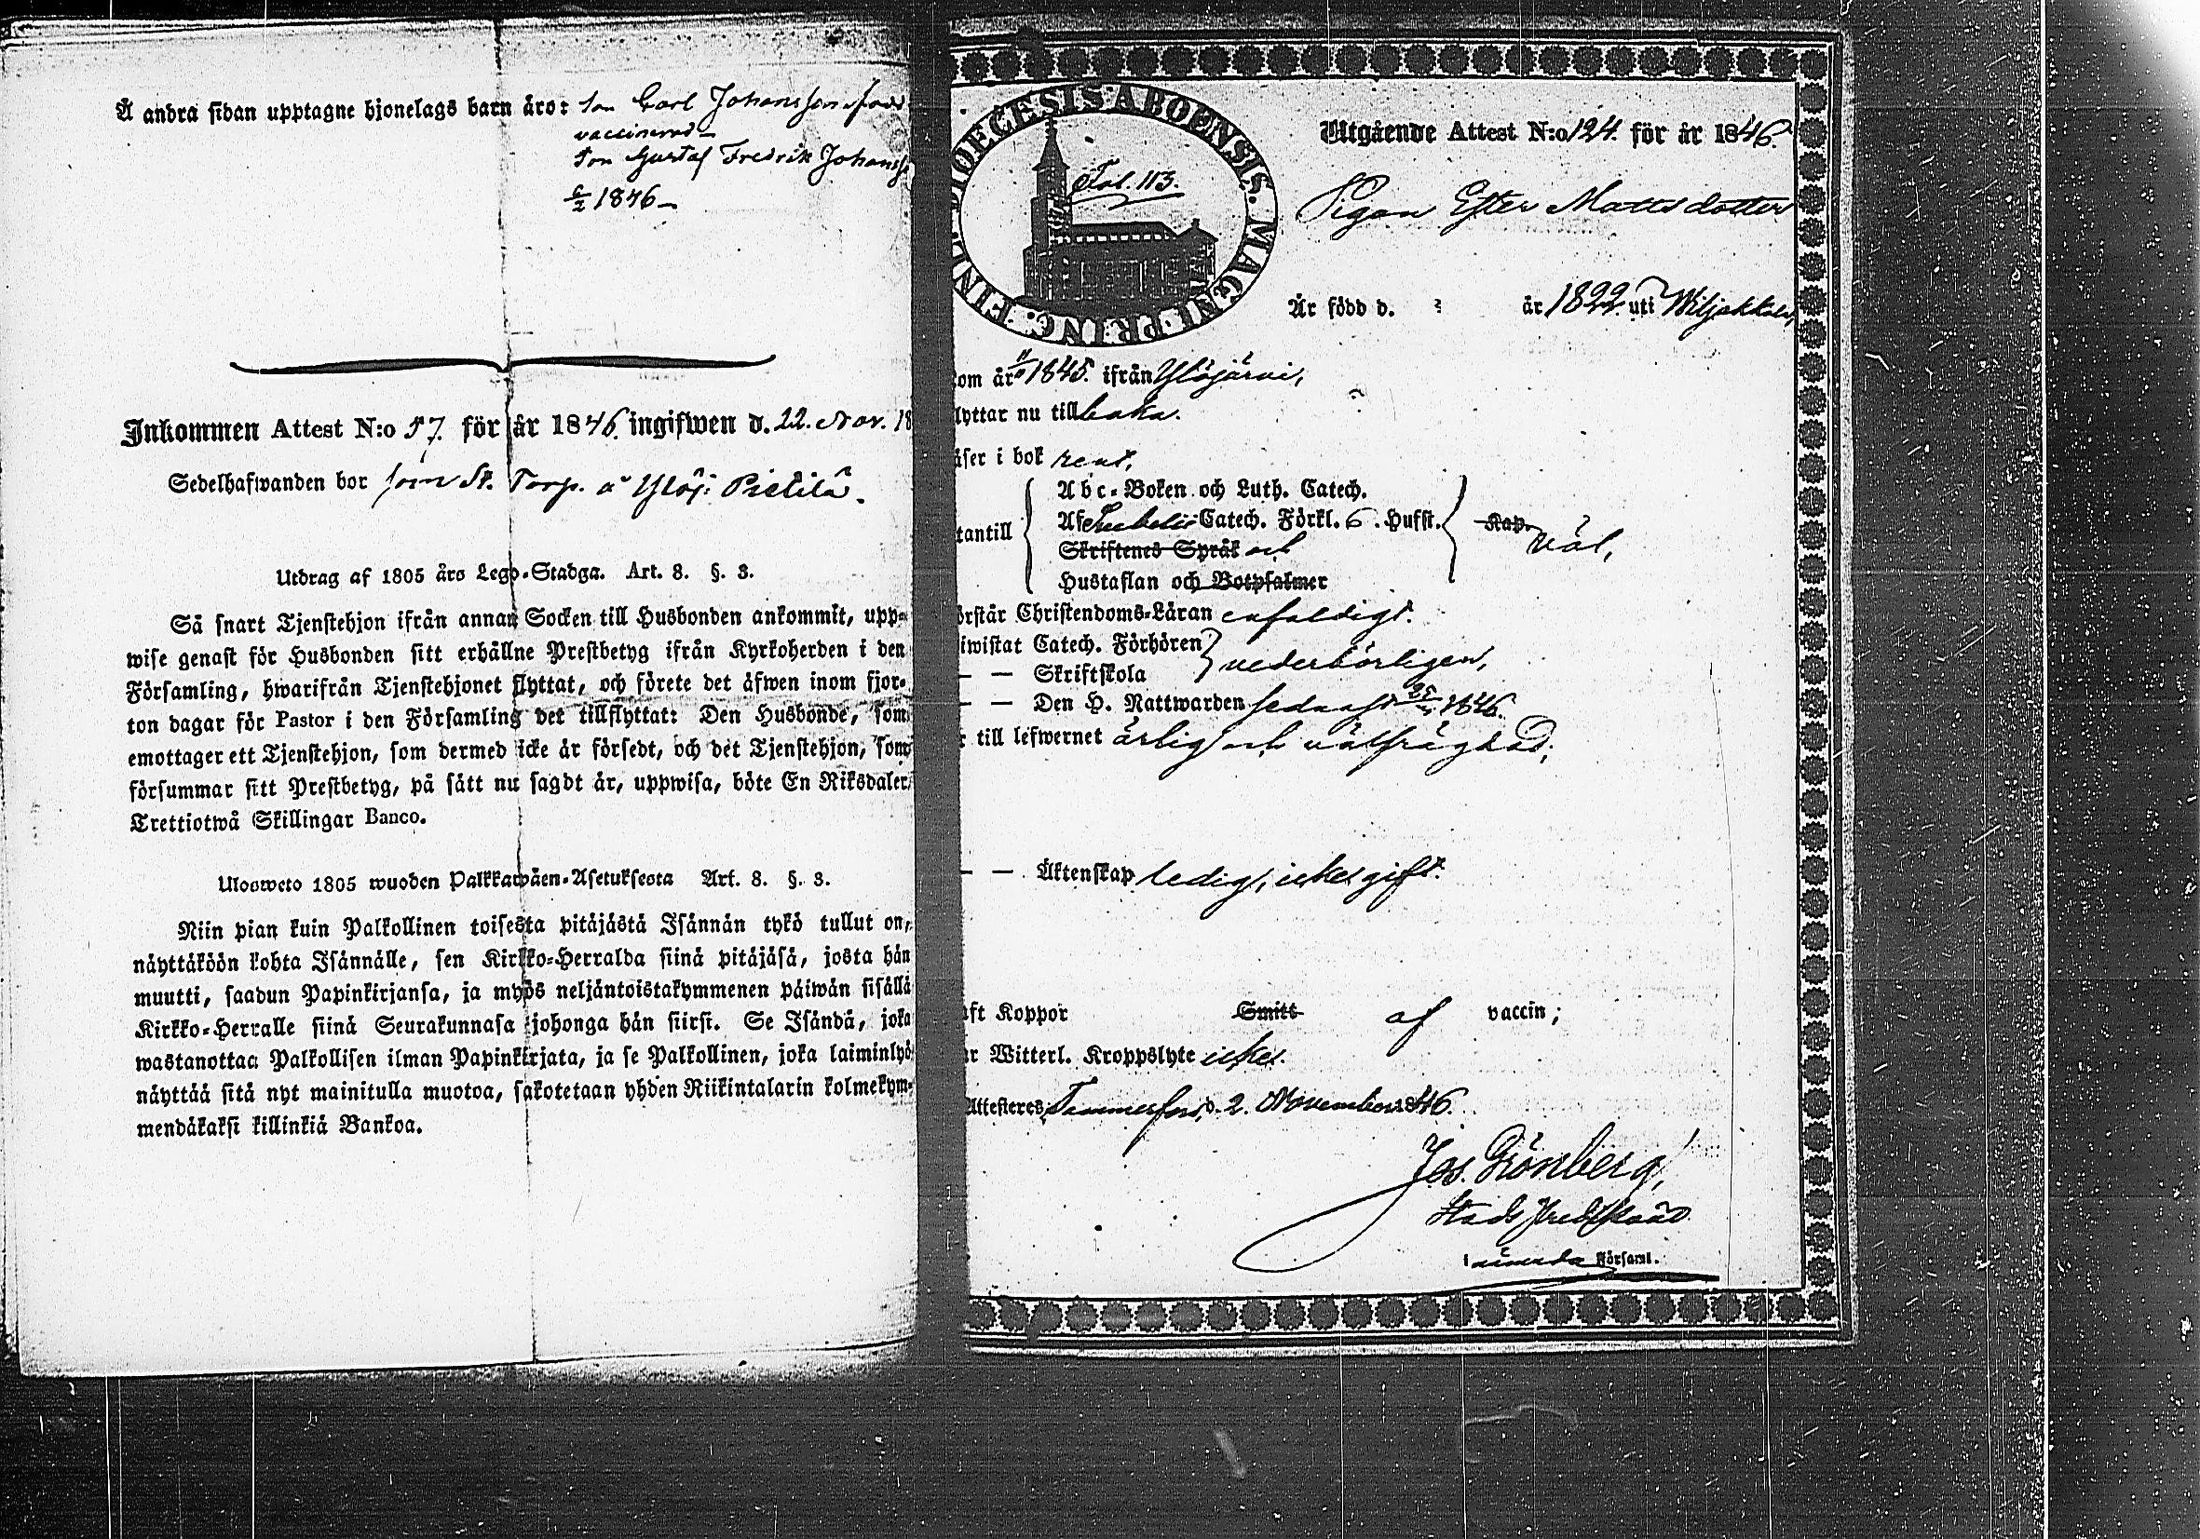 Å andra sidan upptagne hjonelags barn äro: Son Carl Johansson
vaccinerad
Son Gustaf Fredrik Johanss
6/2 1846
Inkommen Attest N:o 57. för år 1846 ingifwen d. 22. Nov. 18
Sedelhafwanden bor som St. Torp. å Ylöj: Pietilä.
Utdrag af 1805 års Lego-Stadga. Art. 8. §. 3.
Så snart Tjenstehjon ifrån annan Socken till Husbonden ankommit, upp-
wise genast för Husbonden sitt erhållne Prestbetyg ifrån Kyrkoherden i den
Församling, hwarifrån Tjenstehjonet flyttat, och förete det äfwen inom fjor-
ton dagar för Pastor i den Församling det tillflyttat: Den Husbonde, som
emottager ett Tjenstehjon, som dermed icke är försedt, och det Tjenstehjon, som
försummar sitt Prestbetyg, på sätt nu sagdt är, uppwisa, böte En Riksdaler
Trettiotwå Skillingar Banco.
Uloswеto 1805 wuoden Palkkawäen-Asetuksesta Art. 8. §. 3.
Niin pian kuin Palkollinen toisesta pitäjästä Isännän tykö tullut on,
näyttäköön kohta Isännälle, sen Kirkko-Herralda siinä pitäjäsä, josta hän
muutti, saadun Papinkirjansa, ja myös neljäntoistakymmenen päiwän sisällä
Kirkko-Herralle siinä Seurakunnasa johonga hän siirsi. Se Isändä, joka
wastanottaa Palkollisen ilman Papinkirjata, ja se Palkollinen, joka laiminlyö
näyttää sitä nyt mainitulla muotoa, sakotetaan yhden Riikintalarin kolmekym-
mendäkaksi killinkiä Bankoa.
DIOECESIS ABOENSIS. MAGNI PRINC. FINL.
Fol. 113.
Utgående Attest N:o 124. för år 1846.
Pigan Ester Mattsdotter
Är född d. år 1822 uti Wiljakkala,
om år 1845. ifrån Ylöjärvi,
lyttar nu tillbaka.
äser i bok rent,
Abc-Boken och Luth. Catech.
tantill Af Catech. Förkl. 6. Hufst. Kap. väl,
Skriftenes Språk och
Hustaflan och Botpsalmer
örstår Christendoms-Läran enfaldigt.
iwistat Catech. Förhören vederbörligen,
— — Skriftskola
— — Den H. Nattwarden sednast 1846.
till lefwernet ärlig och välfrägdad;
— — Äktenskap ledig, icke gift.
aft Koppor Smitt af vaccin;
ar Witterl. Kroppslyte icke.
Attesteres, Tammerfors, d. 2. November 1846.
Jos. Grönberg,
Stads Predikant
i nämnda Församl.